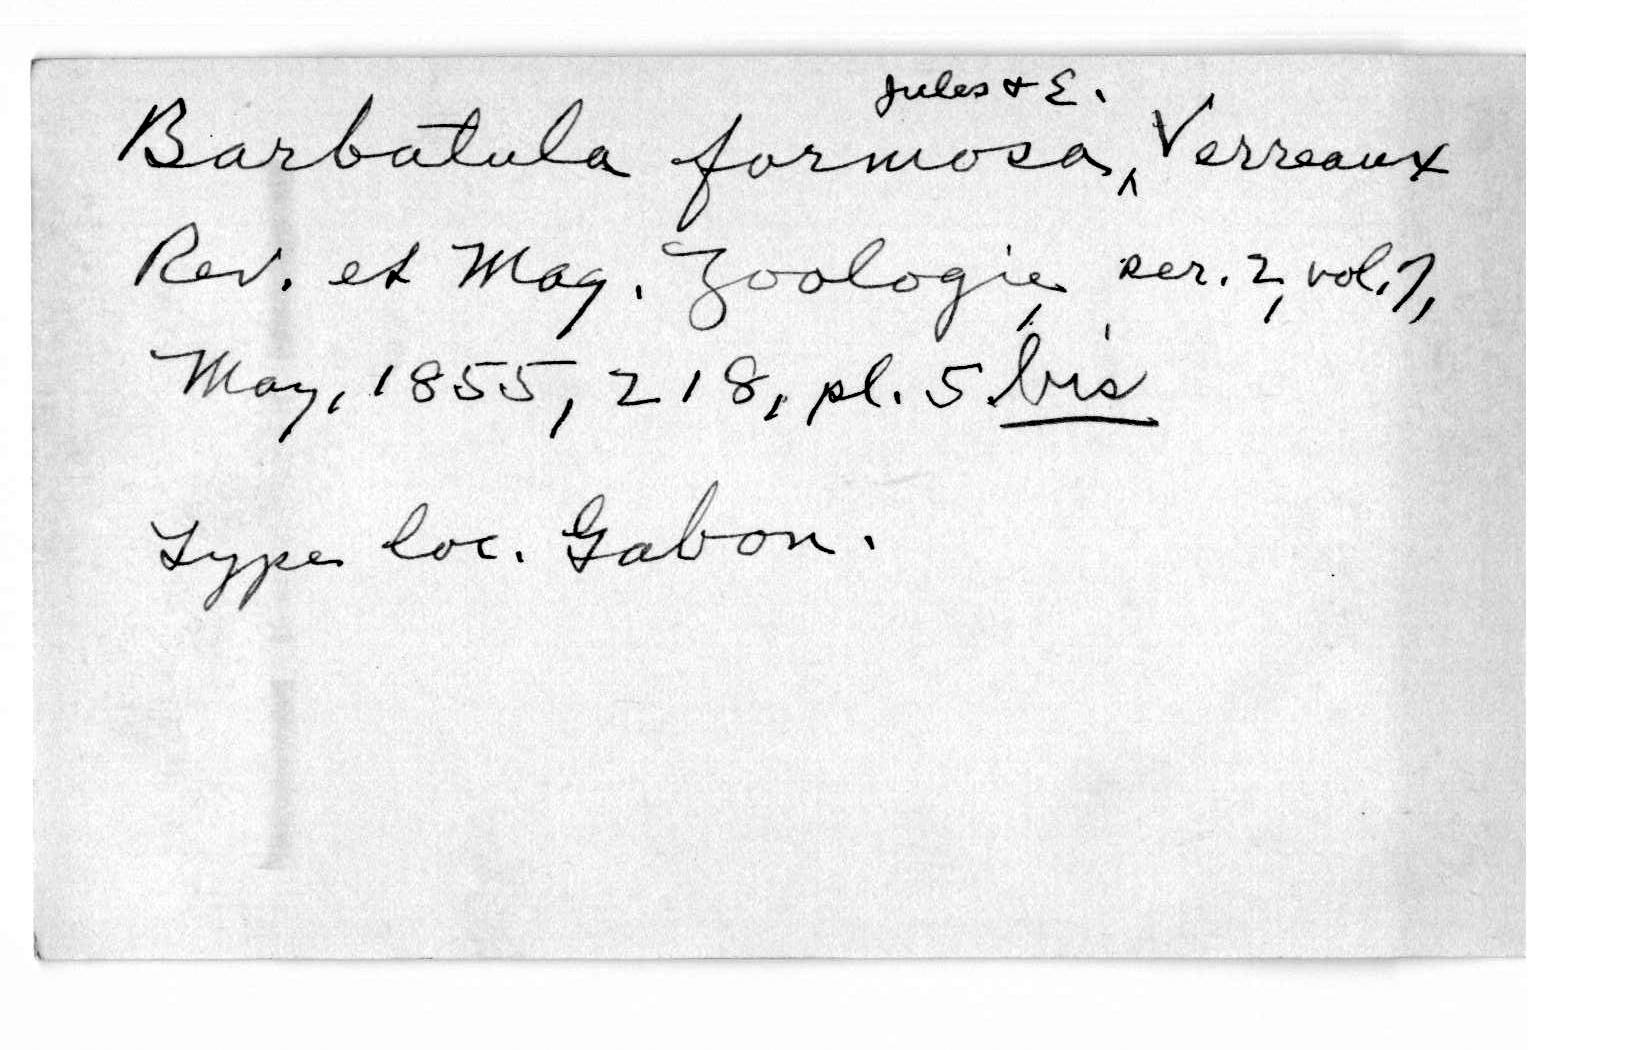 Barbatula formosa, Jules & E. Verreaux
Rev. et Mag. Zoologie, ser. 2, vol. 7,
May, 1855, 218, pl. 5 bis
Type loc. Gabon.